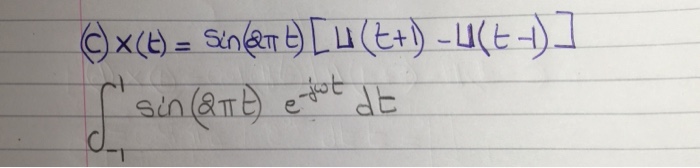 (c) x(t) = sin(2πt) [u(t+1) - u(t-1)]
∫₋₁¹ sin(2πt) e^-jωt dt